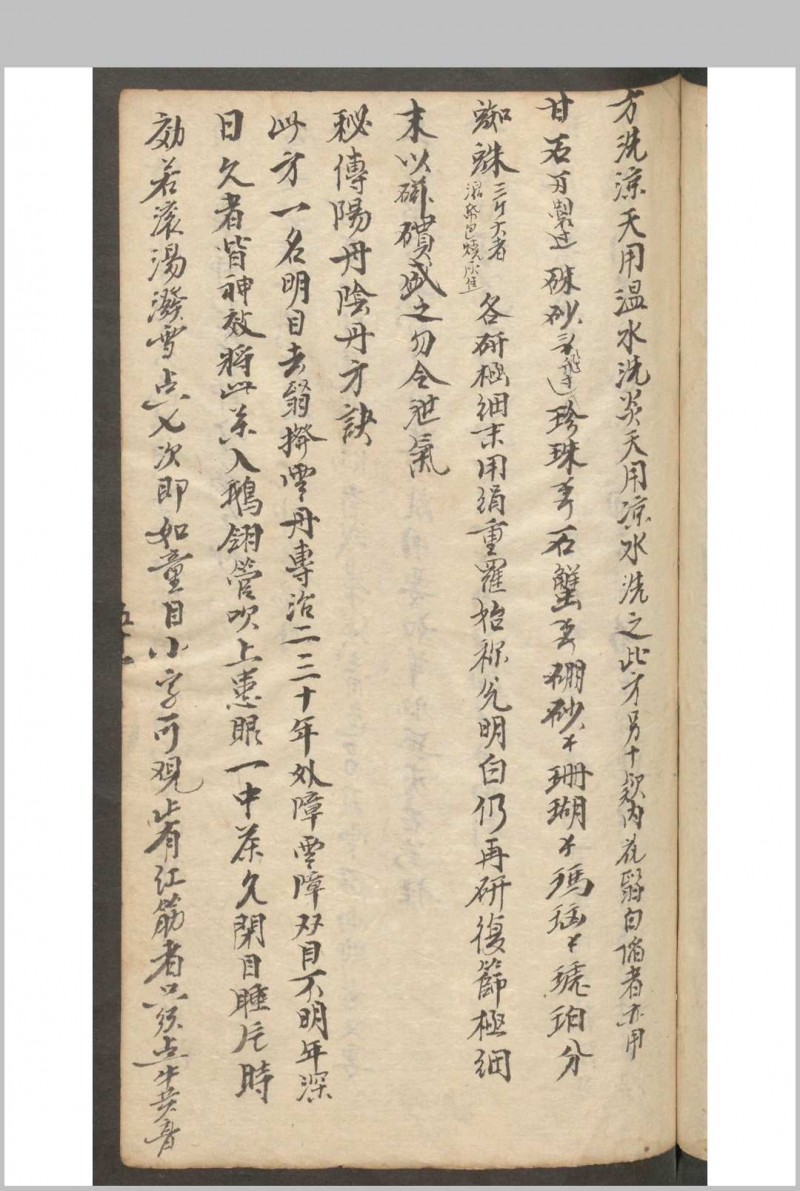 方洗涼天用温水洗炎天用凉水洗之此方另十欵内花翳白陷者亦用
甘石製过硃砂飛过珍珠石蟹硼砂珊瑚瑪瑙琥珀分
蜘蛛三个大者濕紙包燒各研極細末用絹重羅明白仍再研復篩極細
末以磁礶盛之勿令泄氣
秘傳陽丹陰丹方訣
此方一名明目去翳撥雲丹專治二三十年外障雲障双目不明年深
日久者皆神效將此茶入鵝翎管吹上患眼一中茶久閉目睡片時
効若滚湯潑雪点七次即如童目小字可观止有红筋者只须点
五十